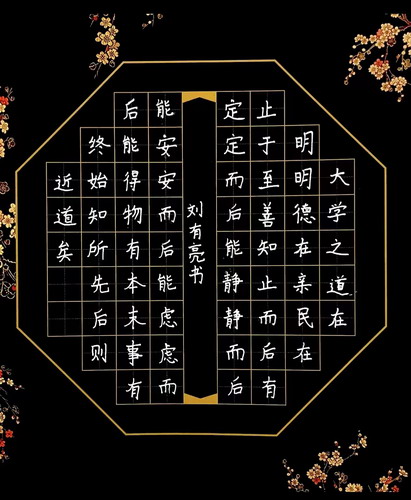 大学之道在
明明德在亲民在
止于至善知止而后有
定定而后能静静而后
刘有亮书
能安安而后能虑虑而
后能得物有本末事有
终始知所先后则
近道矣